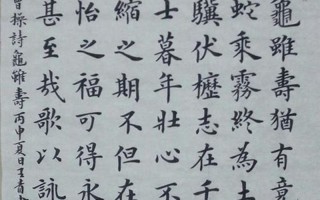 龜雖壽猶有竟
蛇乘霧終為土
驥伏櫪志在千
士暮年壯心不
縮之期不但在
怡之福可得永
甚至哉歌以詠
曹操詩龜雖壽丙申夏日